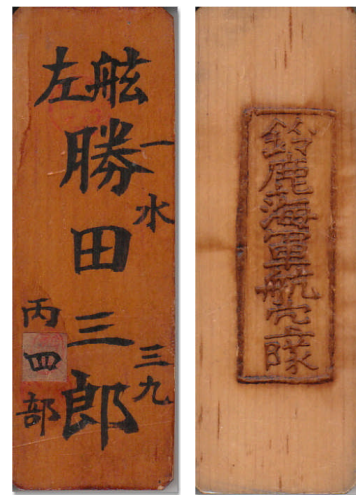 左舷
一水
勝田三郎
三九
丙四部
鈴鹿海軍航空隊